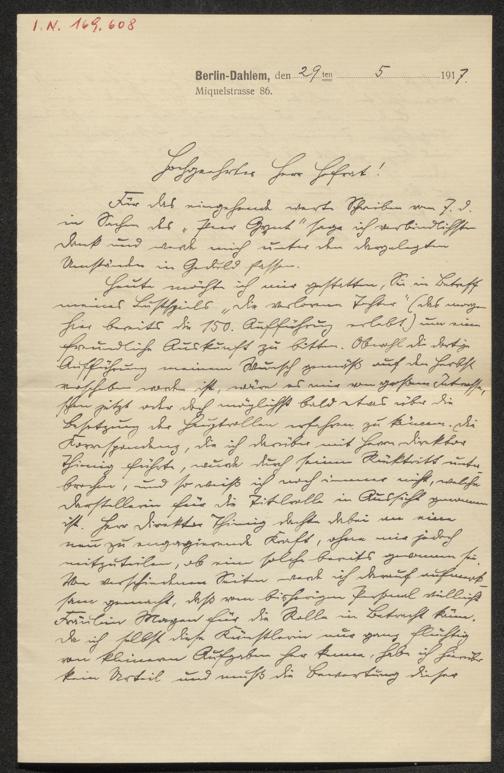 I. N. 169.608
Berlin-Dahlem, den 29ten 5 1917.
Miquelstrasse 86.
Hochgeehrter Herr Hofrat!
Für das eingehende werte Schreiben vom 7. d.
in Sachen des „Peer Gynt" sage ich verbindlichsten
Dank und werde mich unter den dargelegten
Umständen in Geduld fassen.
Heute möchte ich mir gestatten, Sie in Betreff
meines Lustspiels „Die verlorene Tochter" (das morgen
hier bereits die 150. Aufführung erlebt) um eine
freundliche Auskunft zu bitten. Obwohl die dortige
Aufführung meinem Wunsch gemäß auf den Herbst
verschoben worden ist, wäre es mir von großem Interesse,
schon jetzt oder doch möglichst bald etwas über die
Besetzung der Hauptrollen erfahren zu können. Die
Korrespondenz, die ich darüber mit Herrn Direktor
Thimig führte, wurde durch seinen Rücktritt unter-
brochen, und so weiß ich noch immer nicht, welche
Darstellerin für die Titelrolle in Aussicht genommen
ist. Herr Direktor Thimig dachte dabei an eine
neu zu engagierende Kraft, ohne mir jedoch
mitzuteilen, ob eine solche bereits gewonnen sei.
Von verschiedenen Seiten werde ich darauf aufmerk-
sam gemacht, daß vom bisherigen Personal vielleicht
Fräulein Mayen für die Rolle in Betracht käme.
Da ich selbst diese Künstlerin nur ganz flüchtig
von kleineren Aufgaben her kenne, habe ich hierüber
kein Urteil und muß die Bewertung dieser